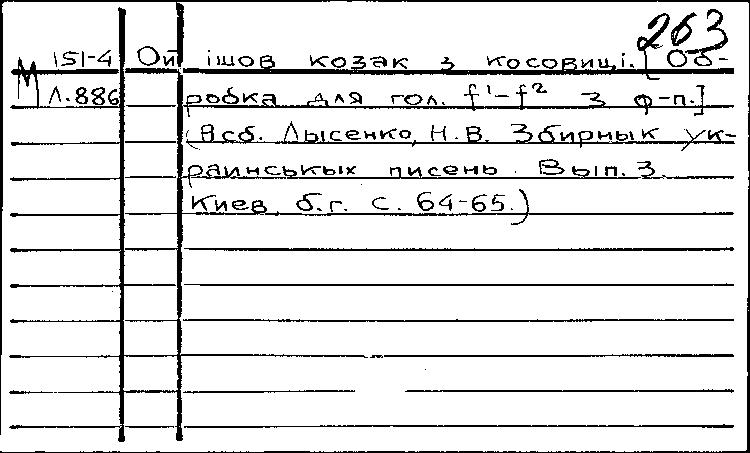 263
М 151-4 Ой ішов козак з косовиці. [Об-
Л.886 робка для гол. f¹-f² з ф-п.]
(В сб. Лысенко, Н.В. Збирнык ук-
раинськых писень. Вып. 3.
Киев, б.г. с. 64-65.)